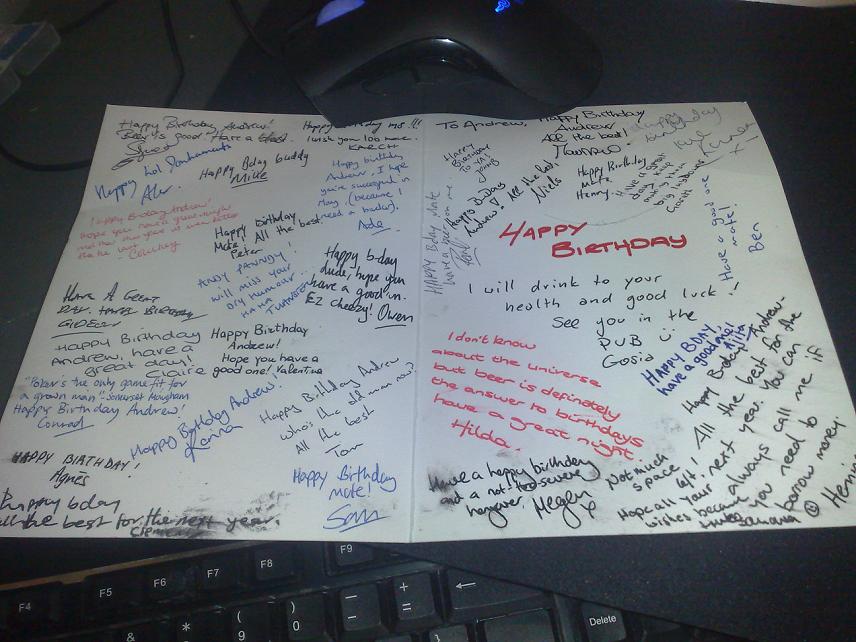 Happy Birthday Andrew!
Beer is good. Have a
Happy Birthday ms !!!
I wish you 100 more.
lol
Happy
Happy Bday buddy
Mike
Happy birthday
Andrew, I hope
you're successful in
May, (because I
need a backer).
Ade
Happy Birthday Andrew!
hope you have a great night
Courtney
Happy birthday
Mate! All the best
Peter
ANDY PANDY!
will miss your
dry humour..
HAHA
Happy b-day
dude, hope you
have a good'un.
EZ cheezy! Owen
Have A Great
DAY.
GIDEON
Happy Birthday
Andrew, have a
great day!
Claire
Happy Birthday
Andrew!
Hope you have a
good one! Valentina
"Poker's the only game fit for
a grown man" Somerset Maugham
Happy Birthday Andrew!
Conrad
Happy Birthday Andrew!
Karina
Happy Birthday Andrew
who's the old man now?
All the best
Tom
HAPPY BIRTHDAY!
Agnes
Happy Birthday
mate!
Sam
Happy bday
all the best for the next year.
Clemens
To Andrew,
Happy Birthday
Andrew
All the best!
Happy
Birthday
To YA!
Happy B-Day
Andrew! All the best,
Niels
Happy Birthday
Mate.
Henny.
Have a great
day
Gareth
Happy
birthday
Happy Bday mate
have a beer on me
Paul
Have a good one
mate!
Ben
HAPPY
BIRTHDAY
I will drink to your
health and good luck!
See you in the
PUB
Gosia
HAPPY BDAY
have a good one!
I don't know
about the universe
but beer is depinately
the answer to birthdays
have a great night.
Hilda.
Happy Bday Andrew-
All the best for the
next year. You can
always call me if
you need to
borrow money
Have a happy birthday
and a not too severe
hangover, Megan x
Not much
space left!
Hope all your
wishes become
F4
F5
F6
F7
F8
F9
&
*
(
9
)
0
—
-
+
=
←
}
Delete